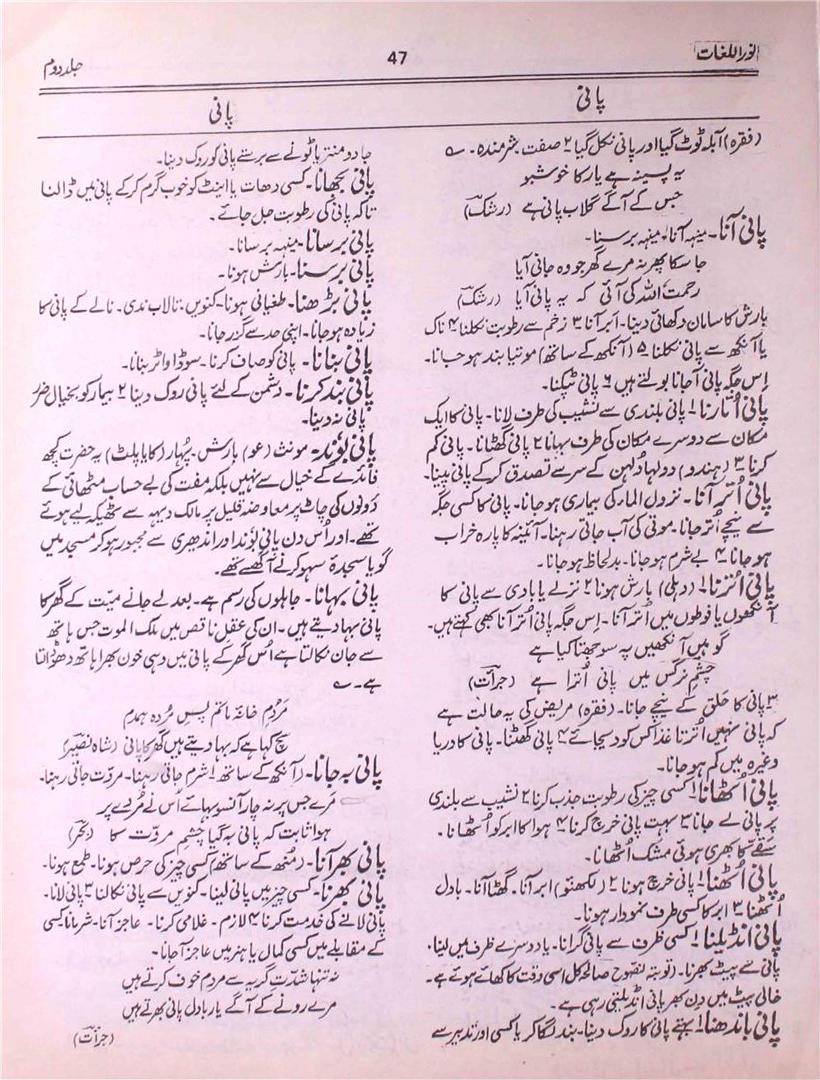 نور اللغات
47
جلد دوم
پانی
پانی
(فقرہ) آبلہ ٹوٹ گیا اور پانی نکل گیا ۲ صفت شرمندہ۔ ؎
یہ پسینہ ہے یار کا خوشبو
جس کے آگے گلاب پانی ہے (رشک)
پانی آنا۔ مینہہ آنا، مینہہ برسنا۔
جا سکا پھر نہ مرے گھر جو وہ جانی آیا
رحمت اللہ کی آئی کہ یہ پانی آیا (رشک)
بارش کا سامان دکھائی دینا۔ ابر آنا ۳ زخم سے رطوبت نکلنا ۴ ناک
یا آنکھ سے پانی نکلنا ۵ (آنکھ کے ساتھ) موتیا بند ہو جانا۔
اِس جگہ پانی آجانا بولتے ہیں ۶ پانی ٹپکنا۔
پانی اُتارنا ۱ پانی بلندی سے نشیب کی طرف لانا۔ پانی کا ایک
مکان سے دوسرے مکان کی طرف بہانا ۲ پانی گھٹانا۔ پانی کم
کرنا ۳ (ہندو) دولہا دُلہن کے سر سے تصدق کرکے پانی پینا۔
پانی اُتر آنا۔ نزول الماء کی بیماری ہو جانا۔ پانی کا کسی جگہ
سے نیچے اُتر جانا۔ موتی کی آب جاتی رہنا۔ آئینہ کا پارہ خراب
ہو جانا ۴ بے شرم ہو جانا۔ بدلحاظ ہو جانا۔
پانی اُترنا ۱ (دہلی) بارش ہونا ۲ نزلے یا بادی سے پانی کا
آنکھوں یا فوطوں میں اُتر آنا۔ اِس جگہ پانی اُتر آنا بھی کہتے ہیں۔
گو ہیں آنکھیں پہ سوجھتا کیا ہے
چشمِ نرگس میں پانی اُترا ہے (جرأت)
۳ پانی کا حلق کے نیچے جانا۔ (فقرہ) مریض کی یہ حالت ہے
کہ پانی نہیں اُترتا غذا کس کو دیجائے ۴ پانی گھٹنا۔ پانی کا دریا
وغیرہ میں کم ہو جانا۔
پانی اُٹھانا ۱ کسی چیز کی رطوبت جذب کرنا ۲ نشیب سے بلندی
پر پانی لے جانا ۳ بہت پانی خرچ کرنا ۴ ہوا کا ابر کو اُٹھانا۔
سقّے کا بھری ہوئی مشک اُٹھانا۔
پانی اُٹھنا ۱ پانی خرچ ہونا ۲ (لکھنؤ) ابر آنا۔ گھٹا آنا۔ بادل
اُٹھنا ۳ ابر کا کسی طرف نمودار ہونا۔
پانی انڈیلنا ۱ کسی ظرف سے پانی گرانا۔ یا دوسرے ظرف میں لینا۔
پانی سے پیٹ بھرنا۔ (توبتہ النصوح) صالحہ کل اسی وقت کا کھائے ہوئے ہے۔
خالی پیٹ میں دن بھر پانی انڈیلتی رہی ہے۔
پانی باندھنا ۱ بہتے پانی کا روک دینا۔ بند لگا کر یا کسی اور تدبیر سے
جادو منتر یا ٹونے سے برستے پانی کو روک دینا۔
پانی بجھانا۔ کسی دھات یا اینٹ کو خوب گرم کرکے پانی میں ڈالنا
تاکہ پانی کی رطوبت جل جائے۔
پانی برسانا۔ مینہہ برسانا۔
پانی برسنا۔ بارش ہونا۔
پانی بڑھنا۔ طغیانی ہونا۔ کنویں، تالاب ندی۔ نالے کے پانی کا
زیادہ ہو جانا۔ اپنی حد سے گذر جانا۔
پانی بنانا۔ پانی کو صاف کرنا۔ سوڈا واٹر بنانا۔
پانی بند کرنا۔ دشمن کے لئے پانی روک دینا ۲ بیمار کو بخیال ضرر
پانی نہ دینا۔
پانی بوُند۔ مونث (عو) بارش۔ پھُہار (کایا پلٹ) یہ حضرت کچھ
فائدے کے خیال سے نہیں بلکہ مفت کی بے حساب مٹھائی کے
دَونوں کی چاٹ پر معاوضہ قلیل پر مالک دیہہ سے ٹھیکہ لئے ہوئے
تھے۔ اور اُس دن پانی بوُند اور اندھیری سے مجبور ہو کر مسجد میں
گویا سجدۂ سہو کرنے آ گھسے تھے۔
پانی بہانا۔ جاہلوں کی رسم ہے۔ بعد لے جانے میّت کے گھر کا
پانی بہا دیتے ہیں۔ ان کی عقل ناقص میں ملک الموت جس ہاتھ
سے جان نکالتا ہے اُس گھر کے پانی میں وہی خون بھرا ہاتھ دھوڈالتا
ہے۔ ؎
مَردُمِ خانۂ ماتم پسِ مُردہ ہمدم
سچ کہا ہے کہ بہا دیتے ہیں گھر کا پانی (شاہ نصیر)
پانی بہ جانا۔ (آنکھ کے ساتھ) شرم جاتی رہنا۔ مروّت جاتی رہنا۔
مرے جس پر نہ چار آنسو بہائے اُس نے مُردے پر
ہوا ثابت کہ پانی بہ گیا چشمِ مروّت کا (بحر)
پانی بھر آنا۔ (منھ کے ساتھ) کسی چیز کی حرص ہونا۔ طمع ہونا۔
پانی بھرنا۔ کسی چیز میں پانی لینا۔ کنویں سے پانی نکالنا ۳ پانی لانا۔
پانی لانے کی خدمت کرنا ۴ لازم۔ غلامی کرنا۔ عاجز آنا۔ شرمانا کسی
کے مقابلے میں کسی کمال یا ہنر میں عاجز آجانا۔
نہ تنہا شدّت گریہ سے مردم خوف کرتے ہیں
مرے رونے کے آگے یار بادل پانی بھرتے ہیں
(جرأت)